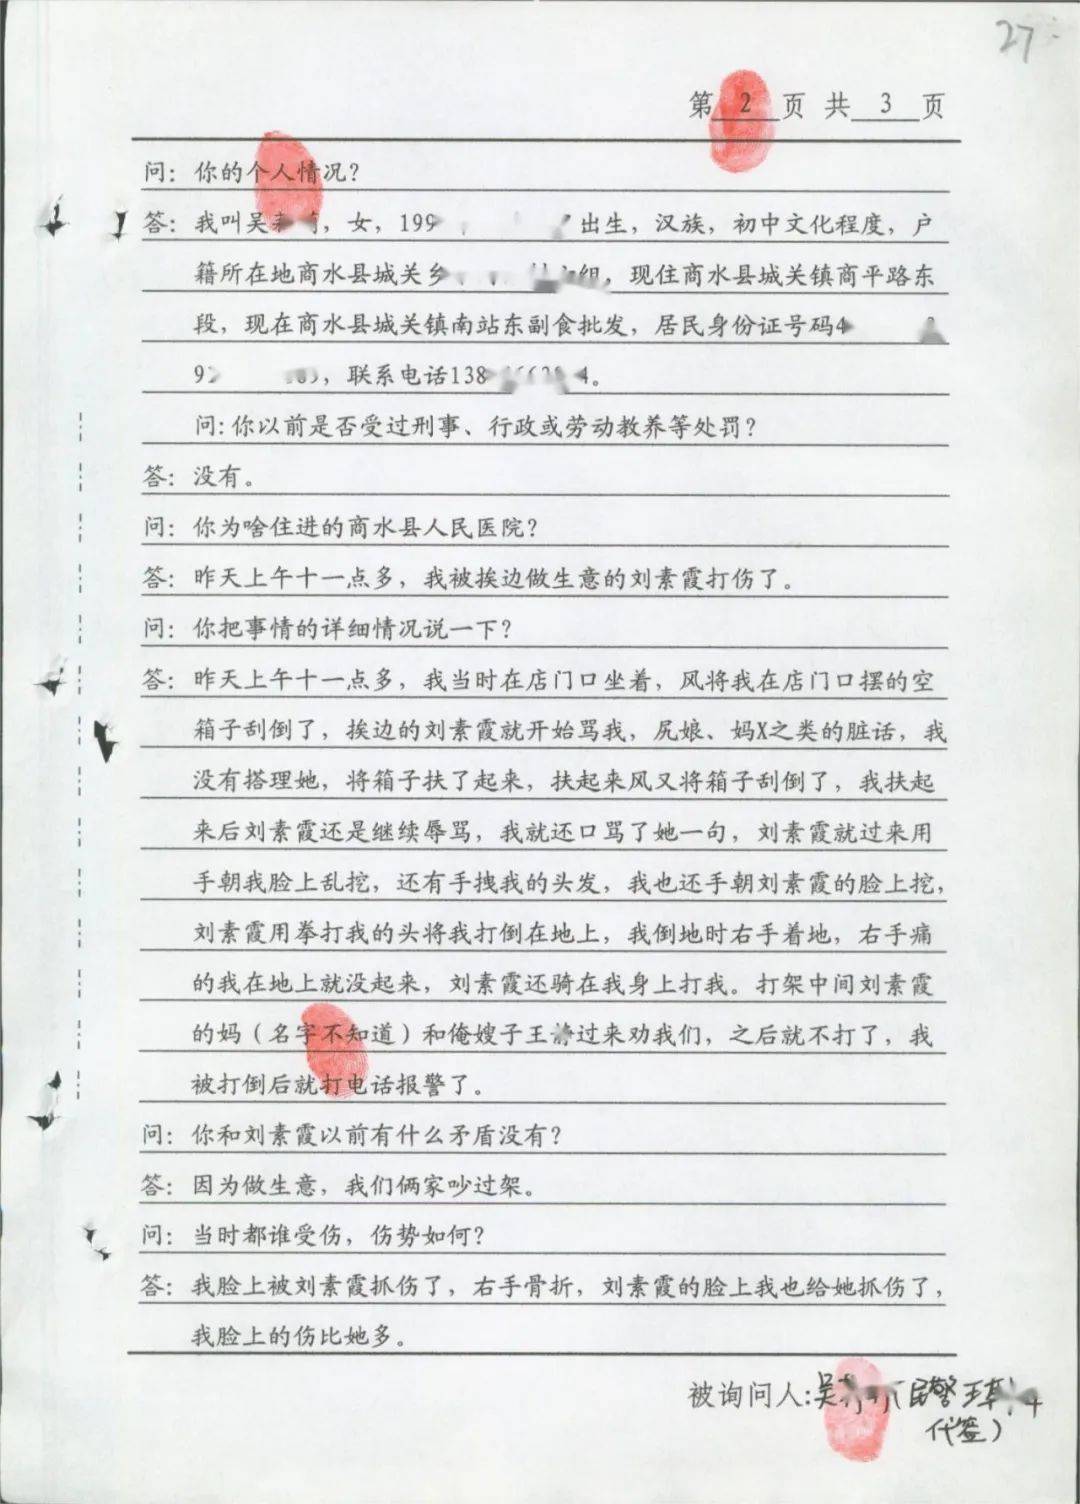 27
第 2 页 共 3 页
问：你的个人情况？
答：我叫吴，女，199 出生，汉族，初中文化程度，户
籍所在地商水县城关乡组，现住商水县城关镇商平路东
段，现在商水县城关镇南站东副食批发，居民身份证号码4
9，联系电话138 4。
问：你以前是否受过刑事、行政或劳动教养等处罚？
答：没有。
问：你为啥住进的商水县人民医院？
答：昨天上午十一点多，我被挨边做生意的刘素霞打伤了。
问：你把事情的详细情况说一下？
答：昨天上午十一点多，我当时在店门口坐着，风将我在店门口摆的空
箱子刮倒了，挨边的刘素霞就开始骂我，尻娘、妈X之类的脏话，我
没有搭理她，将箱子扶了起来，扶起来风又将箱子刮倒了，我扶起
来后刘素霞还是继续辱骂，我就还口骂了她一句，刘素霞就过来用
手朝我脸上乱挖，还有手拽我的头发，我也还手朝刘素霞的脸上挖，
刘素霞用拳打我的头将我打倒在地上，我倒地时右手着地，右手痛
的我在地上就没起来，刘素霞还骑在我身上打我。打架中间刘素霞
的妈（名字不知道）和俺嫂子王过来劝我们，之后就不打了，我
被打倒后就打电话报警了。
问：你和刘素霞以前有什么矛盾没有？
答：因为做生意，我们俩家吵过架。
问：当时都谁受伤，伤势如何？
答：我脸上被刘素霞抓伤了，右手骨折，刘素霞的脸上我也给她抓伤了，
我脸上的伤比她多。
被询问人：吴（民警王
代签）